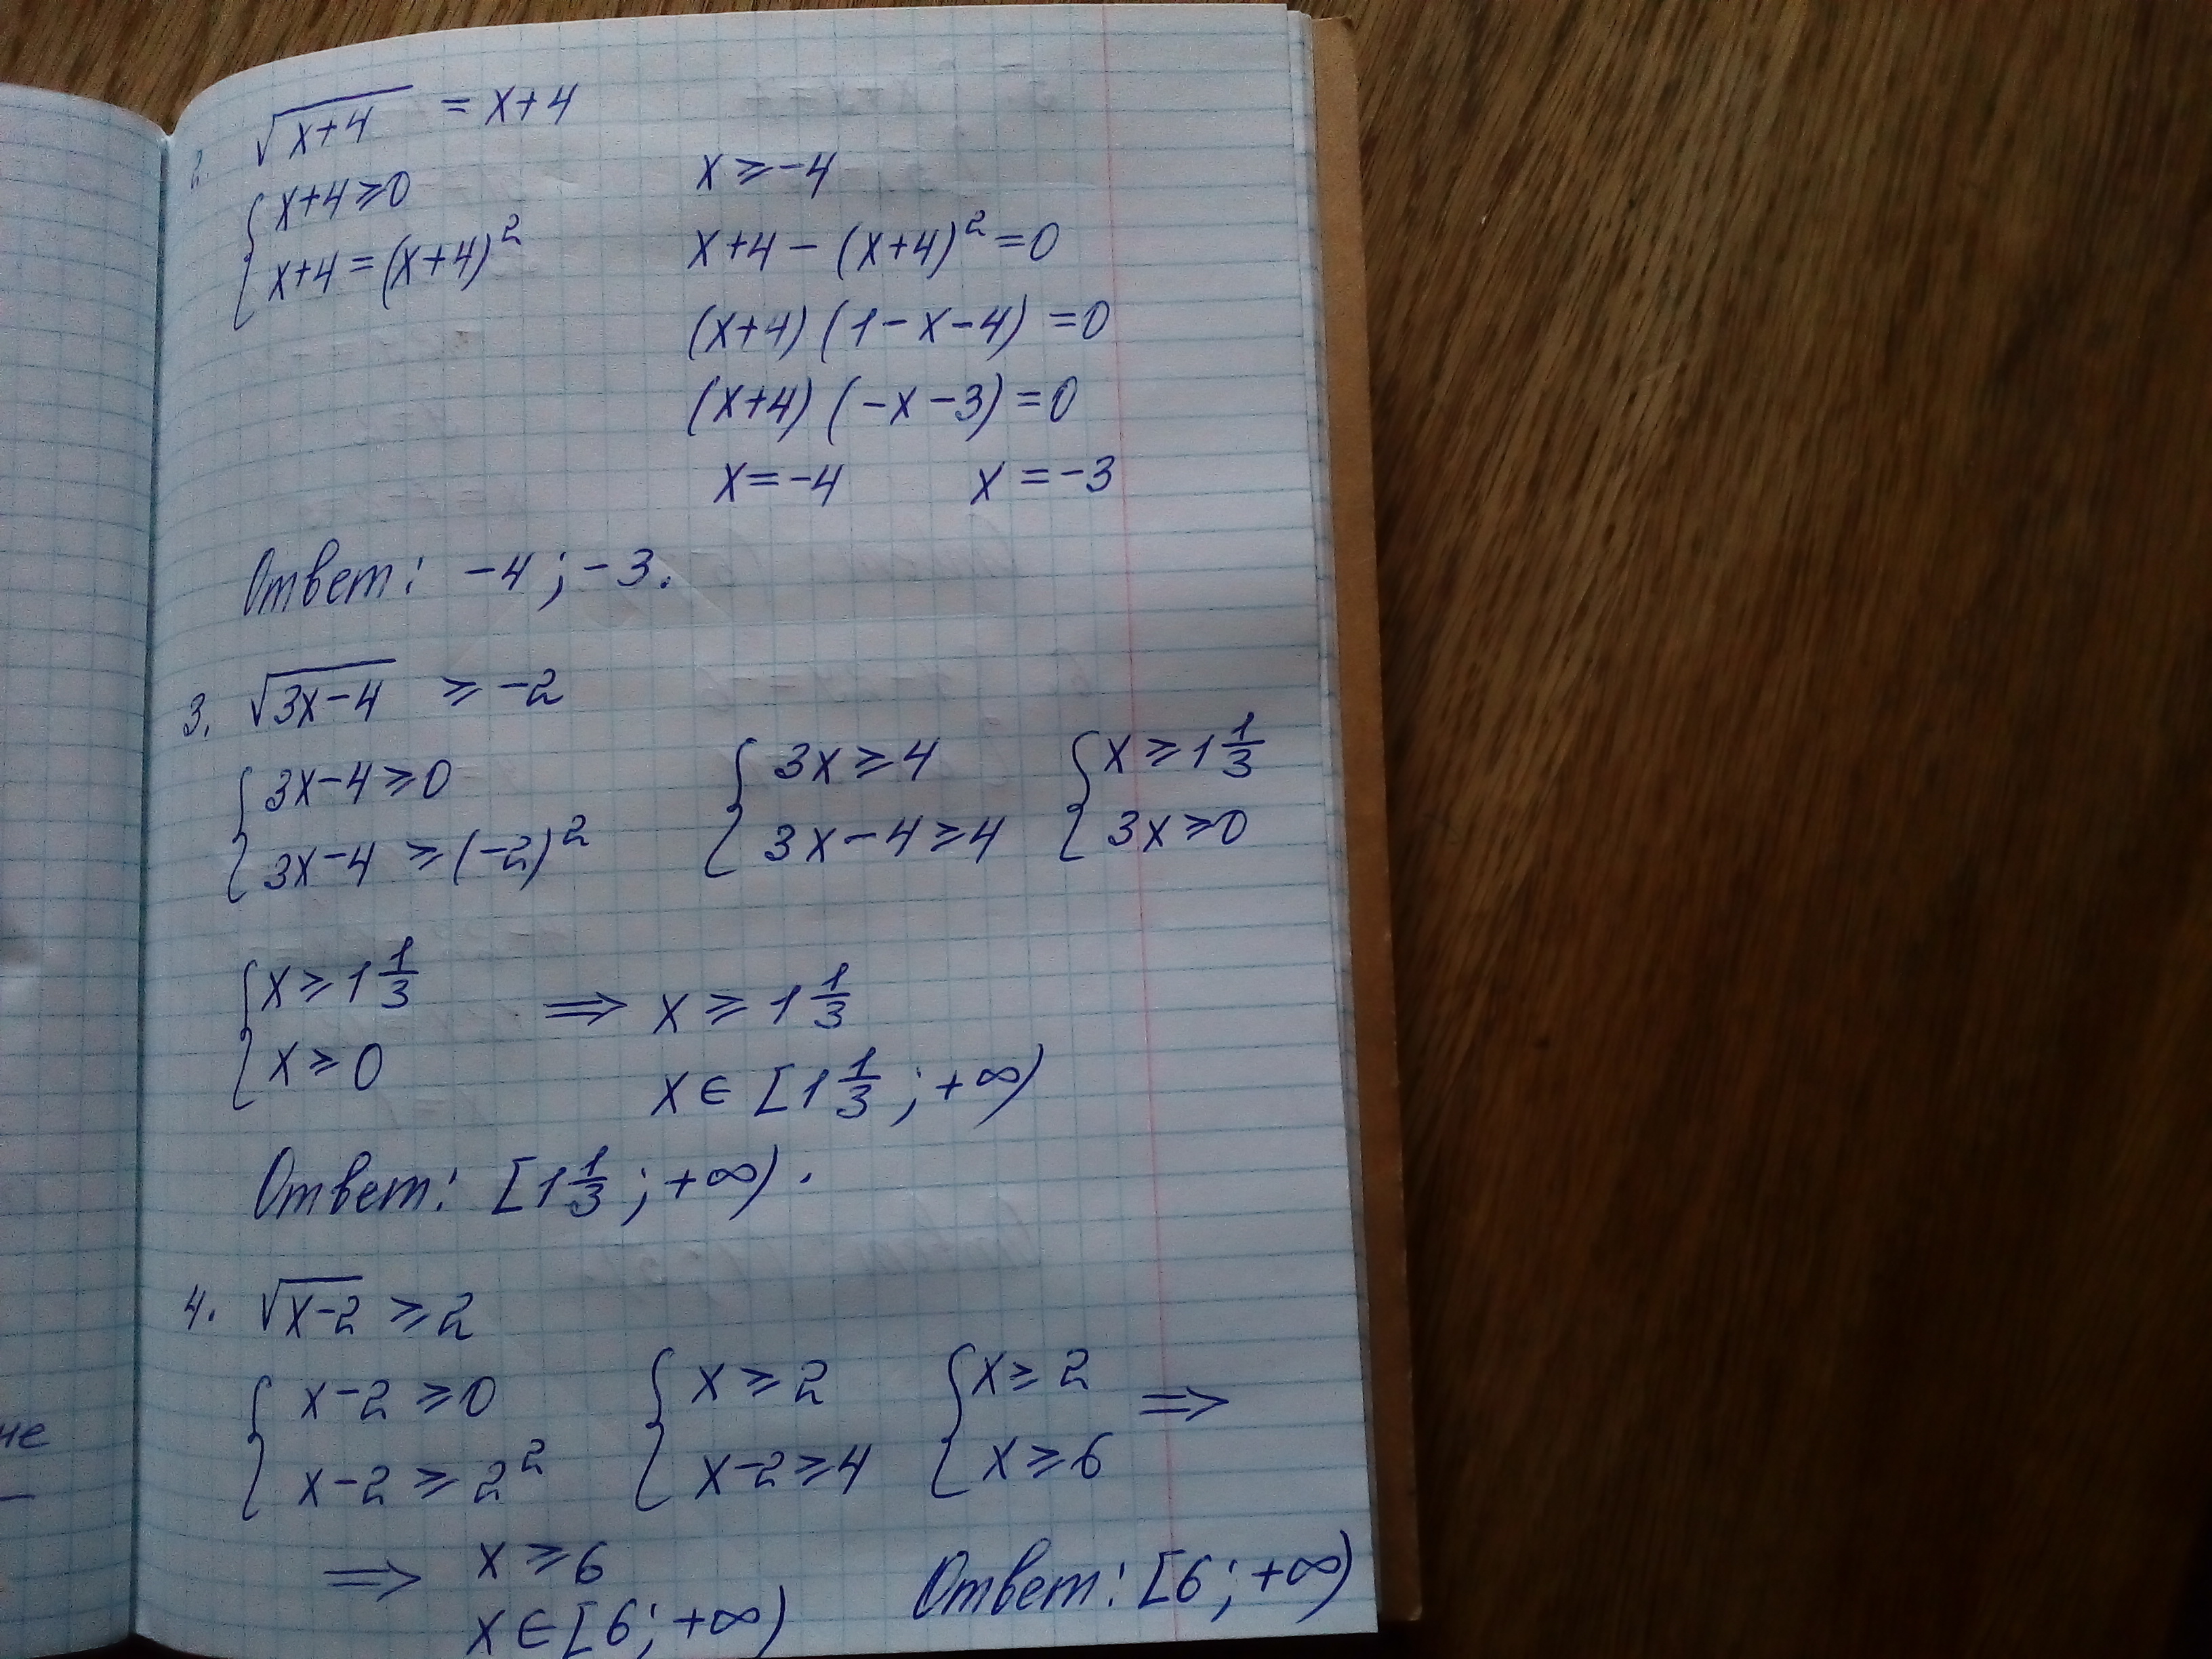 2. √x+4 = x+4
{ x+4 ≥ 0     x ≥ -4
{ x+4 = (x+4)²     x+4 - (x+4)² = 0
(x+4) (1-x-4) = 0
(x+4) (-x-3) = 0
x = -4     x = -3
Ответ: -4 ; -3.
3. √3x-4 ≥ -2
{ 3x-4 ≥ 0     { 3x ≥ 4     { x ≥ 1 1/3
{ 3x-4 ≥ (-2)²     { 3x-4 ≥ 4     { 3x ≥ 0
{ x ≥ 1 1/3     ⇒ x ≥ 1 1/3
{ x ≥ 0     x ∈ [1 1/3 ; +∞)
Ответ: [1 1/3 ; +∞).
4. √x-2 ≥ 2
{ x-2 ≥ 0     { x ≥ 2     { x ≥ 2 ⇒
{ x-2 ≥ 2²     { x-2 ≥ 4     { x ≥ 6
⇒ x ≥ 6
x ∈ [6 ; +∞)     Ответ: [6 ; +∞)